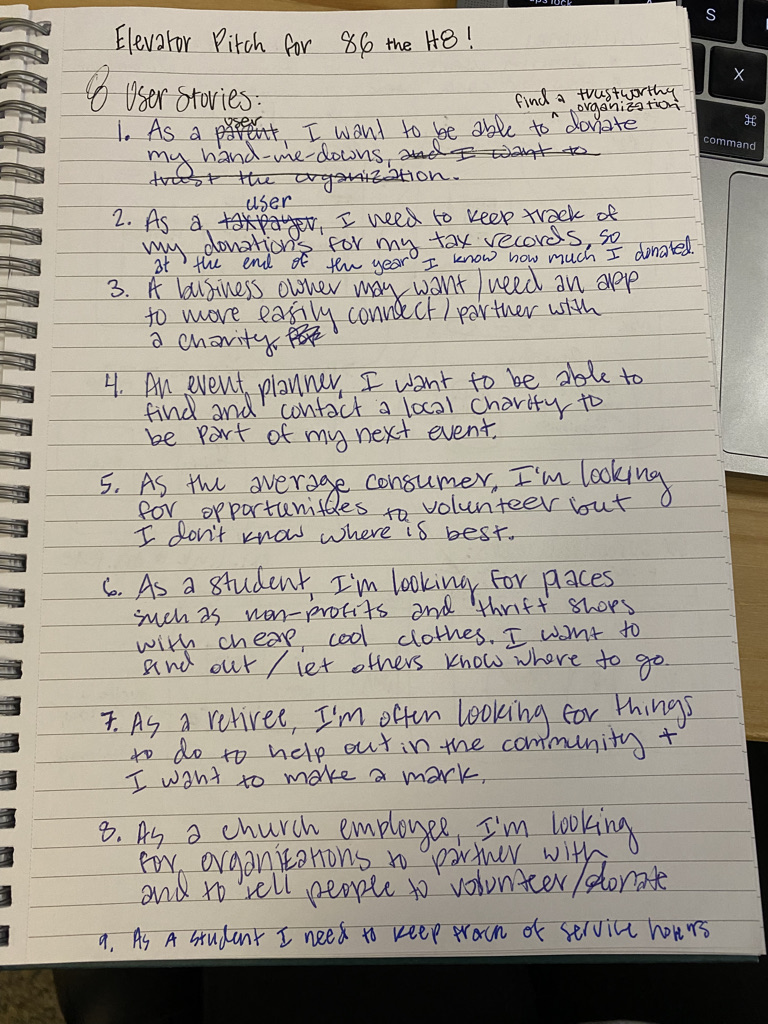 Elevator Pitch for 86 the H8!
8 User Stories:
find a trustworthy
organization
user
1. As a parent, I want to be able to ^ donate
my hand-me-downs, and I want to
trust the organization.
user
2. As a taxpayer, I need to keep track of
my donations for my tax records, so
at the end of the year I know how much I donated.
3. A business owner may want/need an app
to more easily connect/partner with
a charity.
4. An event planner, I want to be able to
find and contact a local charity to
be part of my next event.
5. As the average consumer, I'm looking
for opportunities to volunteer but
I don't know where is best.
6. As a student, I'm looking for places
such as non-profits and thrift shops
with cheap, cool clothes. I want to
find out/let others know where to go.
7. As a retiree, I'm often looking for things
to do to help out in the community +
I want to make a mark.
8. As a church employee, I'm looking
for organizations to partner with
and to tell people to volunteer/donate
9. As a student I need to keep track of service hours
S
X
⌘
command